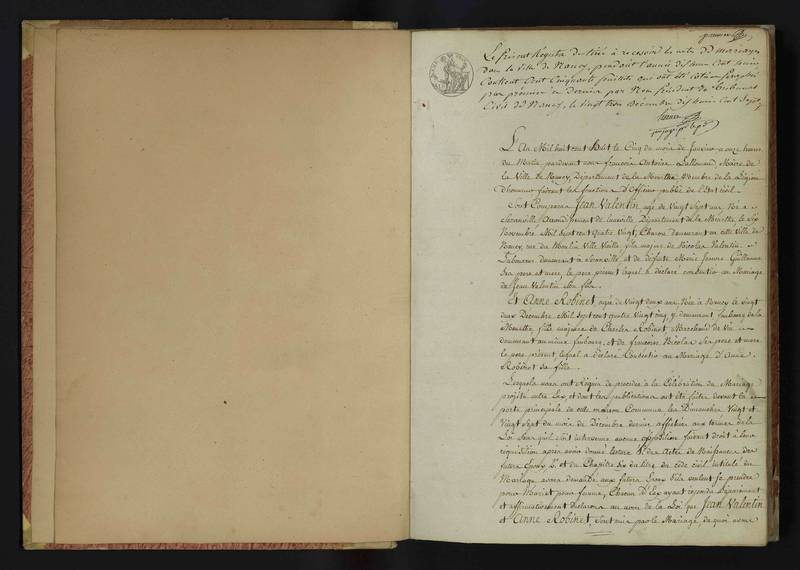 premier
Le présent Registre destiné à recevoir les actes de mariages
dans la Ville de Nancy, pendant l'année dix huit cent huit
contient Cent Cinquante feuillets qui ont été cotés et paraphés
par premier et dernier par Nous Président du Tribunal
Civil de Nancy, le vingt trois Décembre dix huit Cent Sept
L'An Mil huit cent huit le Cinq du mois de Janvier a onze heures
du Matin pardevant nous françois Antoine Lallemand Maire de
la Ville de Nancy, Département de la Meurthe Membre de la Légion
d'honneur faisant les fonctions d'Officier public de l'état Civil.
Sont Comparus Jean Valentin agé de Vingt Sept ans Né à
Seranville Arrondissement de Luneville Département de la Meurthe, le Six
Novembre Mil Sept cent quatre Vingt, demeurant en cette Ville de
Nancy, rue du Moulin Ville Vieille, fils majeur de Nicolas Valentin
Laboureur demeurant à Seranville, et de defunte Marie Jeanne Guillaume
Ses pere et mere, le pere présent lequel a déclaré consentir au Mariage
de Jean Valentin Son fils.
Et Anne Robinet agée de Vingt deux ans Née à Nancy le Vingt
deux Décembre Mil Sept cent quatre Vingt cinq, y demeurant faubourg de la
Meurthe, fille majeure de Charles Robinet Marchand de Vin
demeurant au même faubourg, et de françoise Nicolas Ses pere et mere
le pere présent, lequel a déclaré Consentir au Mariage d'Anne
Robinet Sa fille.
Lesquels nous ont Requis de procéder à la Célébration du Mariage
projetté entre Eux et dont les publications ont été faites devant la
porte principale de cette maison Commune les Dimanches Vingt et
Vingt Sept du mois de Décembre dernier affichées aux termes de la
Loi Sans qu'il Soit intervenu aucune opposition faisant droit à leur
requisition après avoir donné lecture des actes de Naissance des
futurs Epoux et du Chapitre Six du titre du code civil intitulé du
Mariage, avons demandé aux futurs Epoux S'ils veulent Se prendre
pour Mari et pour femme, Chacun d'Eux ayant repondu Séparément
et affirmativement déclarons au nom de la Loi que Jean Valentin
et Anne Robinet, Sont unis par le Mariage, de quoi avons